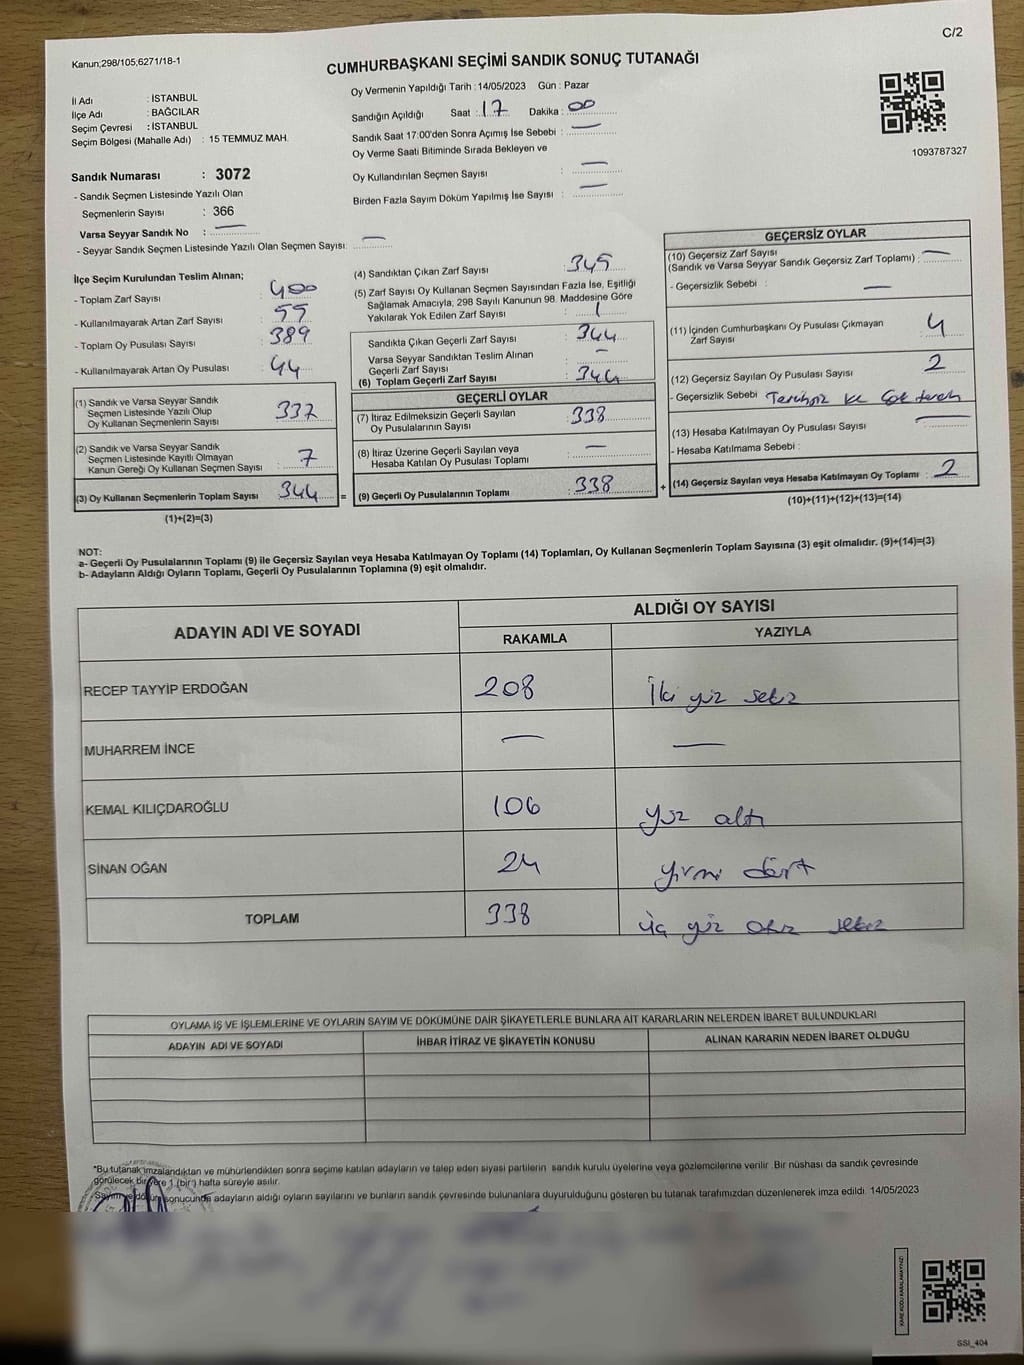 C/2
Kanun;298/105;6271/18-1
CUMHURBAŞKANI SEÇİMİ SANDIK SONUÇ TUTANAĞI
Oy Vermenin Yapıldığı Tarih :14/05/2023 Gün : Pazar
İl Adı : İSTANBUL
İlçe Adı : BAĞCILAR
Seçim Çevresi : İSTANBUL
Seçim Bölgesi (Mahalle Adı) : 15 TEMMUZ MAH.
Sandığın Açıldığı Saat : 17 Dakika : 00
Sandık Saat 17:00'den Sonra Açımış İse Sebebi : —
Oy Verme Saati Bitiminde Sırada Bekleyen ve
Oy Kullandırılan Seçmen Sayısı : —
Birden Fazla Sayım Döküm Yapılmış İse Sayısı : —
1093787327
Sandık Numarası : 3072
- Sandık Seçmen Listesinde Yazılı Olan
Seçmenlerin Sayısı : 366
Varsa Seyyar Sandık No : —
- Seyyar Sandık Seçmen Listesinde Yazılı Olan Seçmen Sayısı: —
İlçe Seçim Kurulundan Teslim Alınan;
- Toplam Zarf Sayısı : 400
- Kullanılmayarak Artan Zarf Sayısı : 55
- Toplam Oy Pusulası Sayısı : 389
- Kullanılmayarak Artan Oy Pusulası : 44
(1) Sandık ve Varsa Seyyar Sandık
Seçmen Listesinde Yazılı Olup
Oy Kullanan Seçmenlerin Sayısı : 337
(2) Sandık ve Varsa Seyyar Sandık
Seçmen Listesinde Kayıtlı Olmayan
Kanun Gereği Oy Kullanan Seçmen Sayısı : 7
(3) Oy Kullanan Seçmenlerin Toplam Sayısı : 344 =
(1)+(2)=(3)
(4) Sandıktan Çıkan Zarf Sayısı : 345
(5) Zarf Sayısı Oy Kullanan Seçmen Sayısından Fazla İse, Eşitliği
Sağlamak Amacıyla, 298 Sayılı Kanunun 98. Maddesine Göre
Yakılarak Yok Edilen Zarf Sayısı : 1
Sandıkta Çıkan Geçerli Zarf Sayısı : 344
Varsa Seyyar Sandıktan Teslim Alınan
Geçerli Zarf Sayısı : —
(6) Toplam Geçerli Zarf Sayısı : 344
GEÇERLİ OYLAR
(7) İtiraz Edilmeksizin Geçerli Sayılan
Oy Pusulalarının Sayısı : 338
(8) İtiraz Üzerine Geçerli Sayılan veya
Hesaba Katılan Oy Pusulası Toplamı : —
(9) Geçerli Oy Pusulalarının Toplamı : 338 +
GEÇERSİZ OYLAR
(10) Geçersiz Zarf Sayısı
(Sandık ve Varsa Seyyar Sandık Geçersiz Zarf Toplamı) : —
- Geçersizlik Sebebi : —
(11) İçinden Cumhurbaşkanı Oy Pusulası Çıkmayan
Zarf Sayısı : 4
(12) Geçersiz Sayılan Oy Pusulası Sayısı : 2
- Geçersizlik Sebebi : Tercihsiz ve çok tercih
(13) Hesaba Katılmayan Oy Pusulası Sayısı : —
- Hesaba Katılmama Sebebi :
(14) Geçersiz Sayılan veya Hesaba Katılmayan Oy Toplamı : 2
(10)+(11)+(12)+(13)=(14)
NOT:
a- Geçerli Oy Pusulalarının Toplamı (9) ile Geçersiz Sayılan veya Hesaba Katılmayan Oy Toplamı (14) Toplamları, Oy Kullanan Seçmenlerin Toplam Sayısına (3) eşit olmalıdır. (9)+(14)=(3)
b- Adayların Aldığı Oyların Toplamı, Geçerli Oy Pusulalarının Toplamına (9) eşit olmalıdır.
ADAYIN ADI VE SOYADI ALDIĞI OY SAYISI
RAKAMLA YAZIYLA
RECEP TAYYİP ERDOĞAN 208 İki yüz sekiz
MUHARREM İNCE — —
KEMAL KILIÇDAROĞLU 106 Yüz altı
SİNAN OĞAN 24 yirmi dört
TOPLAM 338 üç yüz otuz sekiz
OYLAMA İŞ VE İŞLEMLERİNE VE OYLARIN SAYIM VE DÖKÜMÜNE DAİR ŞİKAYETLERLE BUNLARA AİT KARARLARIN NELERDEN İBARET BULUNDUKLARI
ADAYIN ADI VE SOYADI İHBAR İTİRAZ VE ŞİKAYETİN KONUSU ALINAN KARARIN NEDEN İBARET OLDUĞU
*Bu tutanak imzalandıktan ve mühürlendikten sonra seçime katılan adayların ve talep eden siyasi partilerin sandık kurulu üyelerine veya gözlemcilerine verilir. Bir nüshası da sandık çevresinde
görülecek bir yere 1 (bir) hafta süreyle asılır.
Sayım ve döküm sonucunda adayların aldığı oyların sayılarını ve bunların sandık çevresinde bulunanlara duyurulduğunu gösteren bu tutanak tarafımızdan düzenlenerek imza edildi. 14/05/2023
KARE KODU KARALAMAYINIZ!
SSI_404